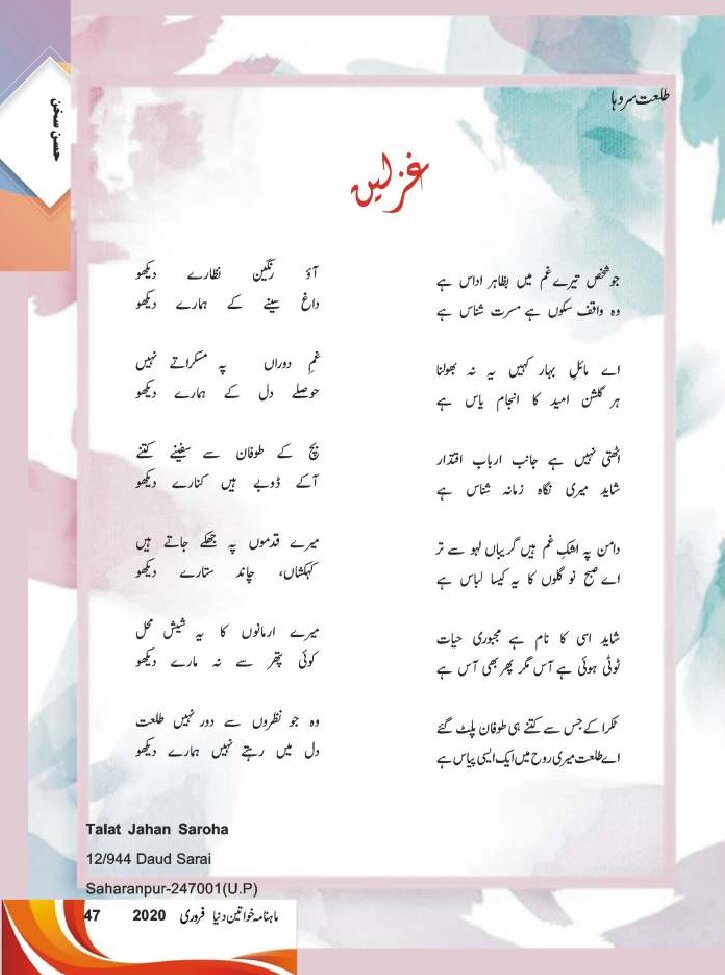 حسن سخن
طلعت سروہا
غزلیں
جو شخص تیرے غم میں بظاہر اداس ہے
وہ واقف سکوں ہے مسرت شناس ہے
اے مائلِ بہار کہیں یہ نہ بھولنا
ہر گلشن امید کا انجام یاس ہے
اٹھتی نہیں ہے جانب ارباب اقتدار
شاید میری نگاہ زمانہ شناس ہے
دامن پہ اشکِ غم ہیں گریباں لہو سے تر
اے صبح نو گلوں کا یہ کیسا لباس ہے
شاید اسی کا نام ہے مجبوری حیات
ٹوٹی ہوئی ہے آس مگر پھر بھی آس ہے
ٹکرا کے جس سے کتنے ہی طوفان پلٹ گئے
اے طلعت میری روح میں ایک ایسی پیاس ہے
آؤ رنگین نظارے دیکھو
داغ سینے کے ہمارے دیکھو
غمِ دوراں پہ مسکراتے نہیں
حوصلے دل کے ہمارے دیکھو
بچ کے طوفان سے سفینے کتنے
آکے ڈوبے ہیں کنارے دیکھو
میرے قدموں پہ جھکے جاتے ہیں
کہکشاں، چاند ستارے دیکھو
میرے ارمانوں کا یہ شیش محل
کوئی پتھر سے نہ مارے دیکھو
وہ جو نظروں سے دور نہیں طلعت
دل میں رہتے نہیں ہمارے دیکھو
Talat Jahan Saroha
12/944 Daud Sarai
Saharanpur-247001(U.P)
ماہنامہ خواتین دنیا فروری 2020 47